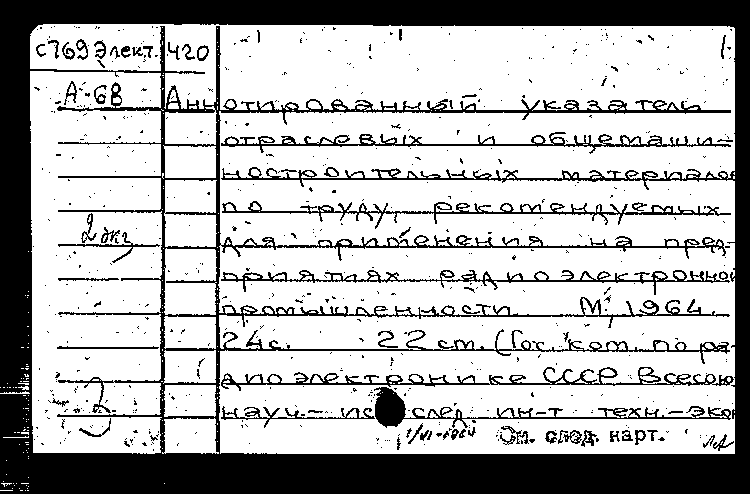 С769 Элект. 420
А-68 Аннотированный указатель
отраслевых и общемаши-
ностроительных материалов
по труду, рекомендуемых
2 экз для применения на пред-
приятиях радиоэлектронной
промышленности. М., 1964.
24с. 22 см. (Гос. ком. по ра-
диоэлектронике СССР. Всесоюз
науч.- исслед. ин-т техн.-эко
См. след. карт.